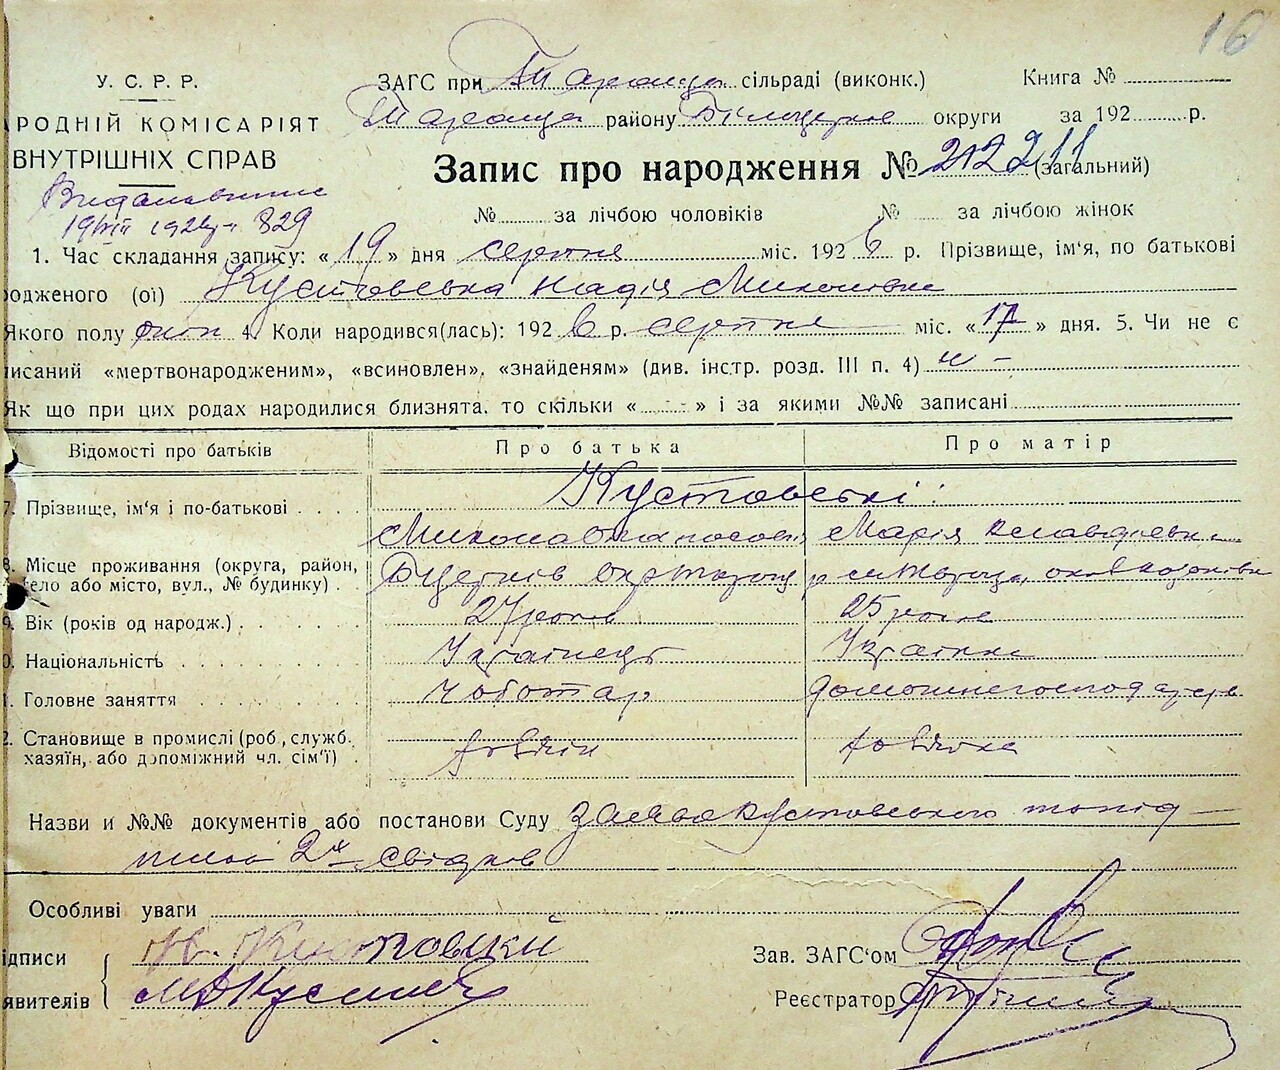 16
У. С. Р. Р.
РОДНІЙ КОМІСАРІЯТ
ВНУТРІШНІХ СПРАВ
19/VIII 1926 р 829
ЗАГС при Тараща сільраді (виконк.) Книга №
Тараща району Білоцерков округи за 192 р.
Запис про народження № 212 211 (загальний)
№ за лічбою чоловіків № за лічбою жінок
1. Час складання запису: « 19 » дня серпня міс. 1926 р. Прізвище, ім'я, по батькові
одженого (ої) Кустовська Надія Миколівна
Якого полу жін 4. Коли народився(лась): 1926 р. серпня міс. « 17 » дня. 5. Чи не є
исаний «мертвонародженим», «всиновлен», «знайденям» (див. інстр. розд. III п. 4) н -
Як що при цих родах народилися близнята. то скільки « - » і за якими №№ записані
Відомості про батьків Про батька Про матір
7. Прізвище, ім'я і по-батькові Кустовські:
Микола Марія Клавдієвна
8. Місце проживання (округа, район, село або місто, вул., № будинку) Бцерків окр Таращ р м Тараща
9. Вік (років од народж.) 27 років 25 років
0. Національність Українець Українка
1. Головне заняття Чоботар домашнє господарств
2. Становище в промислі (роб, служб. хазяїн, або допоміжний чл. сім'ї)
Назви и №№ документів або постанови Суду Заява Кустовського та під-
писи 2х свідков
Особливі уваги
ідписи Н. Кустовский
явителів
Зав. ЗАГС'ом
Реєстратор